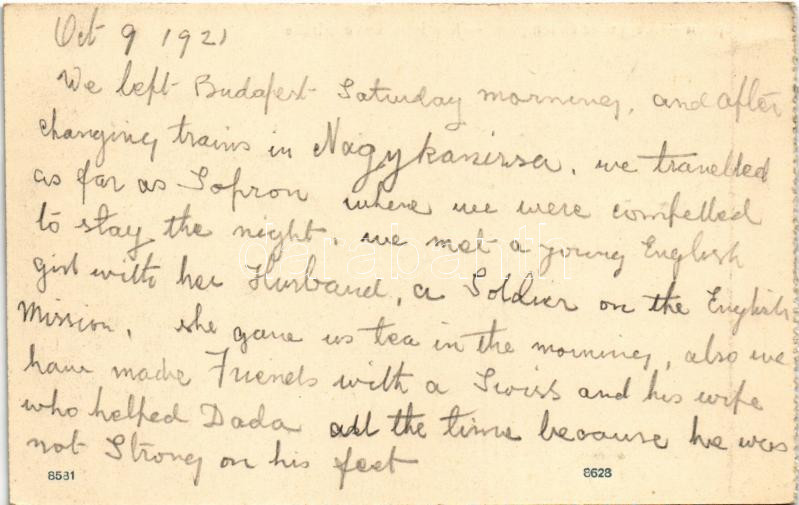 Oct 9 1921
We left Budapest Saturday morning, and after
changing trains in Nagykanizsa, we travelled
as far as Sopron where we were compelled
to stay the night, we met a young English
girl with her Husband, a Soldier on the English
Mission, she gave us tea in the morning, also we
have made Friends with a Swiss and his wife
who helped Dada all the time because he was
not Strong on his feet
8581 8628
darabanth